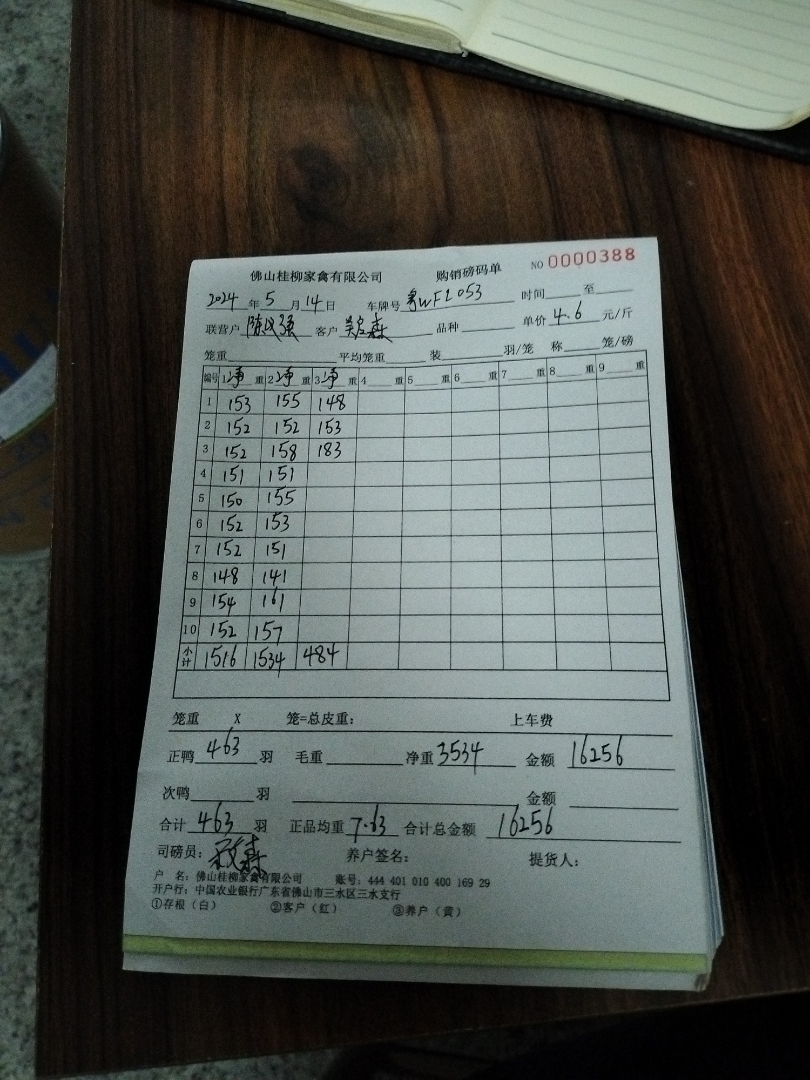 佛山桂柳家禽有限公司 购销磅码单 NO 0000388
2024年5月14日 车牌号 粤WF2053 时间 至
联营户 陈 强 客户 森 品种 单价 4.6 元/斤
笼重 平均笼重 装 羽/笼 称 笼/磅
编号 1 净 重 2 净 重 3 净 重 4 重 5 重 6 重 7 重 8 重 9 重
1 153 155 148
2 152 152 153
3 152 158 183
4 151 151
5 150 155
6 152 153
7 152 151
8 148 141
9 154 161
10 152 157
小计 1516 1534 484
笼重 X 笼=总皮重: 上车费
正鸭 463 羽 毛重 净重 3534 金额 16256
次鸭 羽 金额
合计 463 羽 正品均重 7.63 合计总金额 16256
司磅员: 森 养户签名: 提货人:
户 名: 佛山桂柳家禽有限公司 账号: 444 401 010 400 169 29
开户行: 中国农业银行广东省佛山市三水区三水支行
①存根（白） ②客户（红） ③养户（黄）